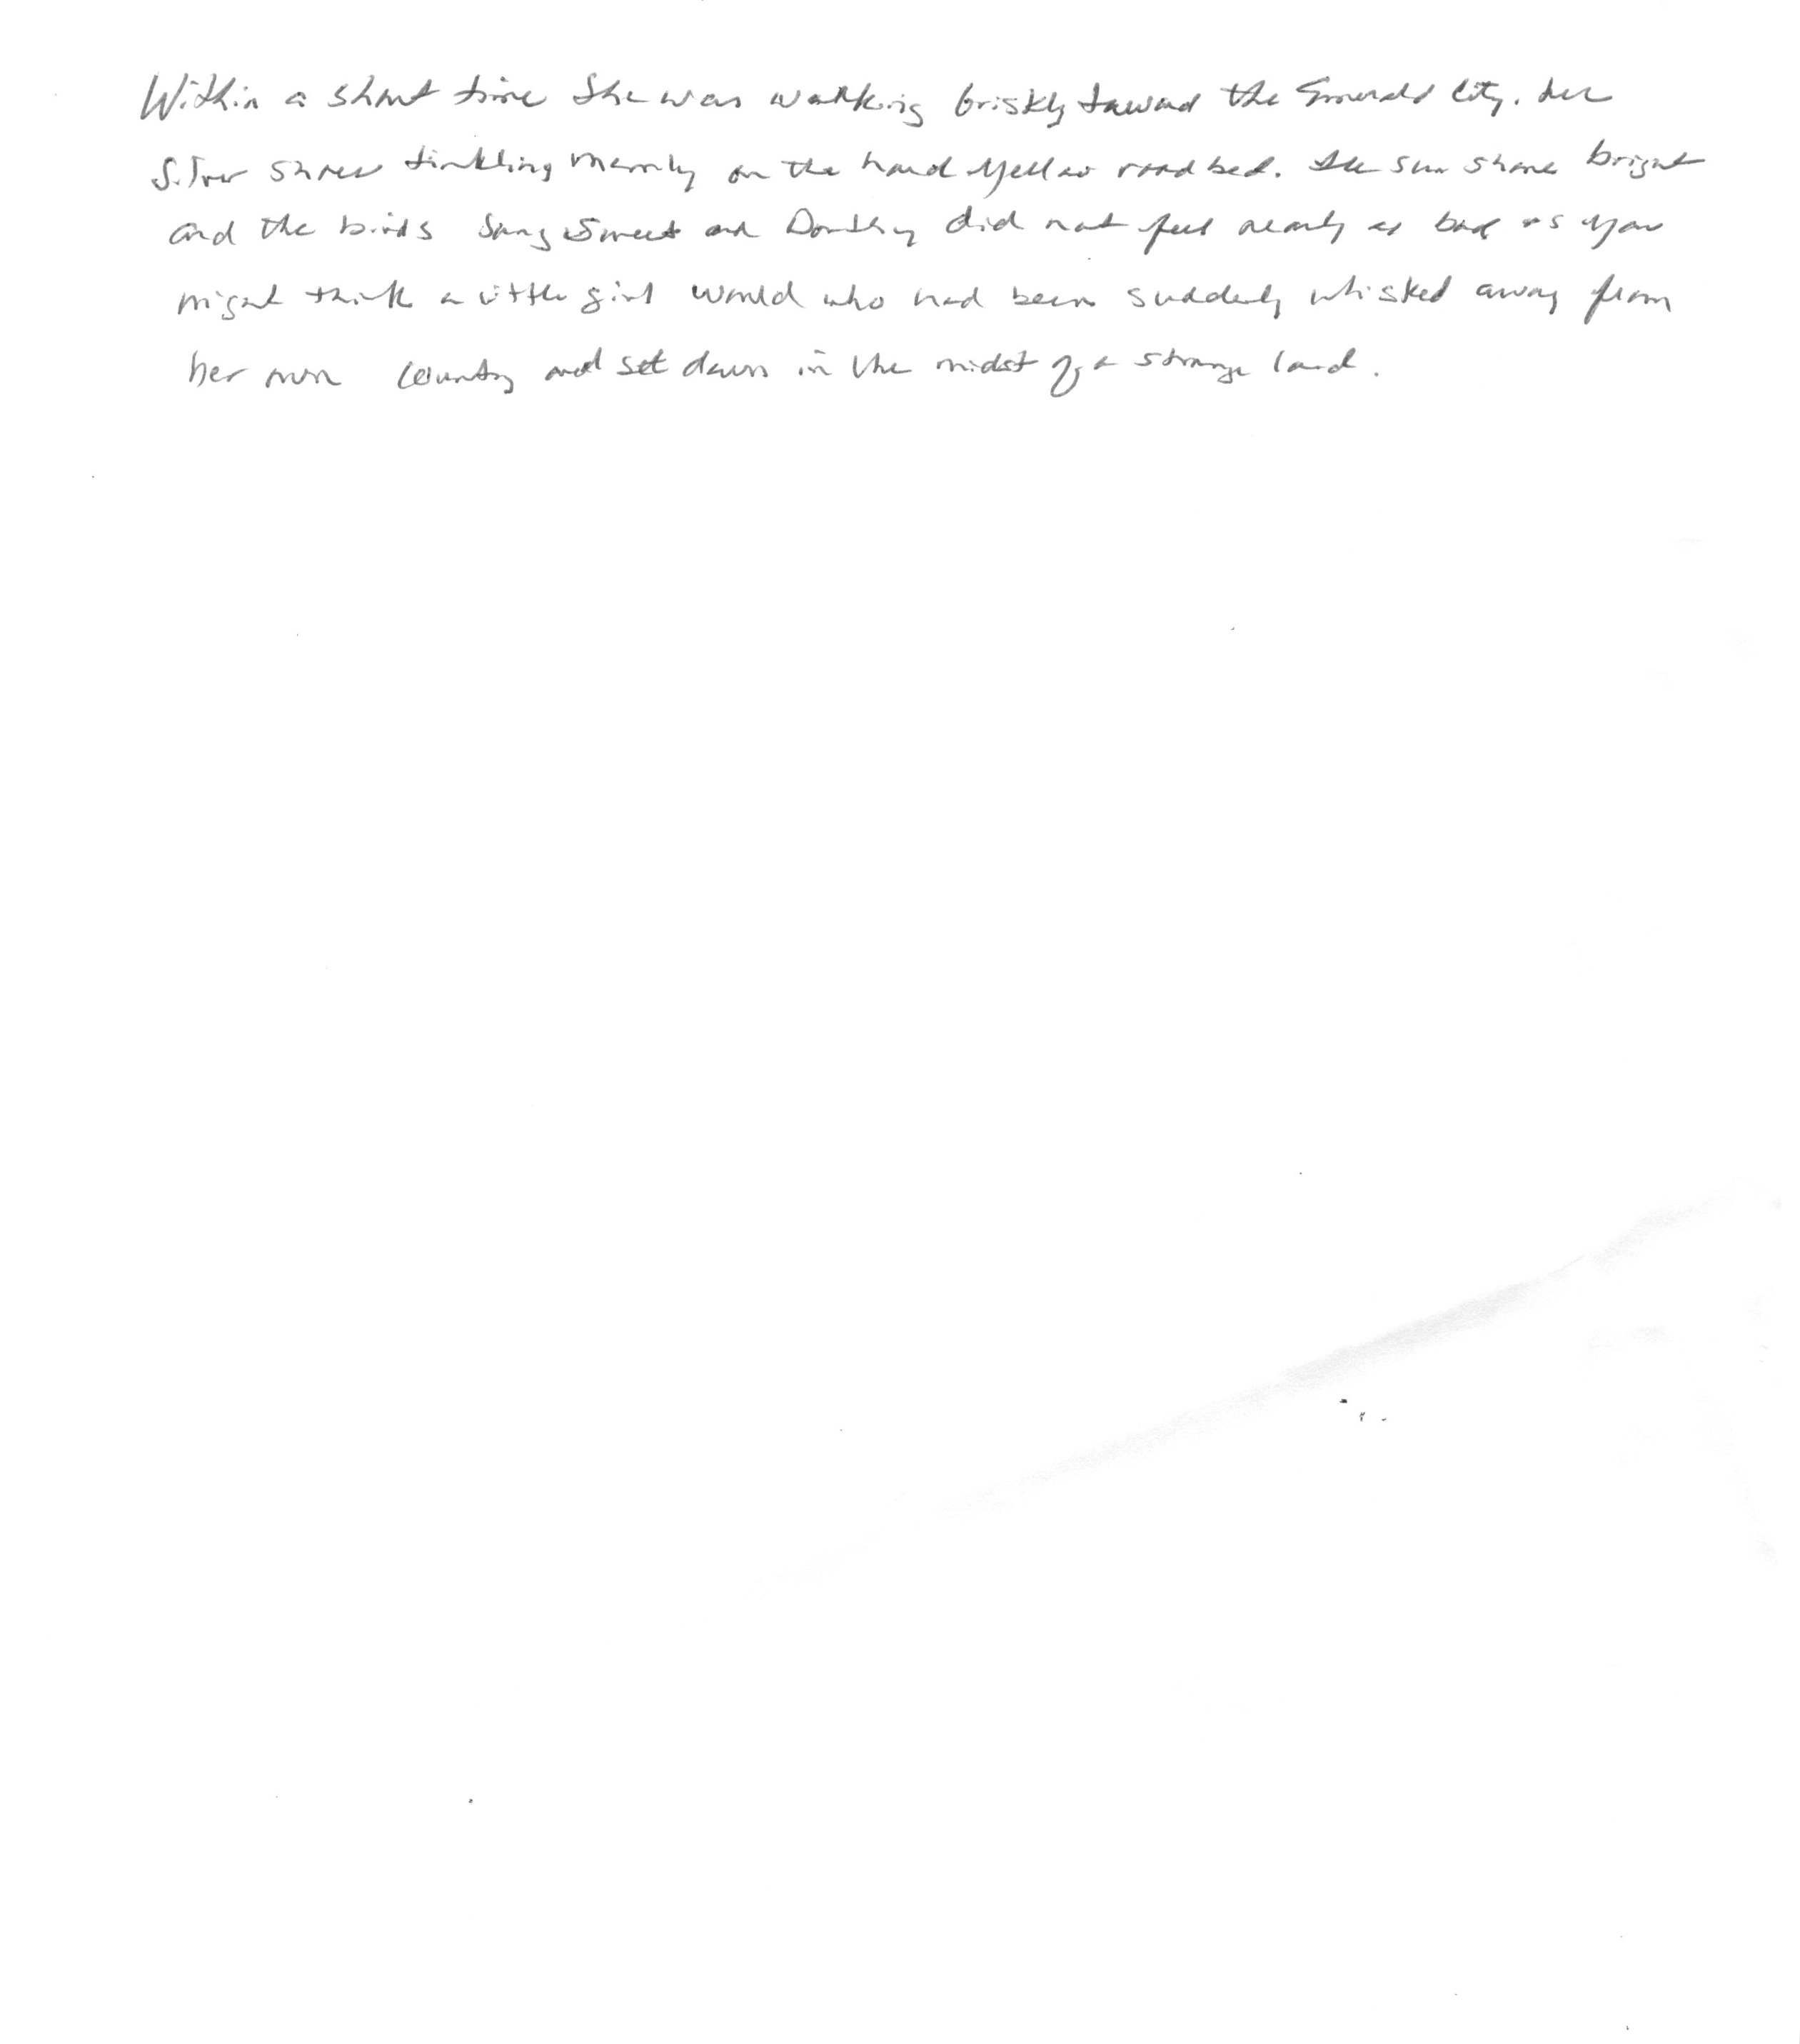 Within a short time she was walking briskly toward the Emerald City. her
Silver shoes tinkling merrily on the hard yellow road bed. The sun shone bright
and the birds sang sweet and Dorothy did not feel nearly as bad as you
might think a little girl would who had been suddenly whisked away from
her own country and set down in the midst of a strange land.